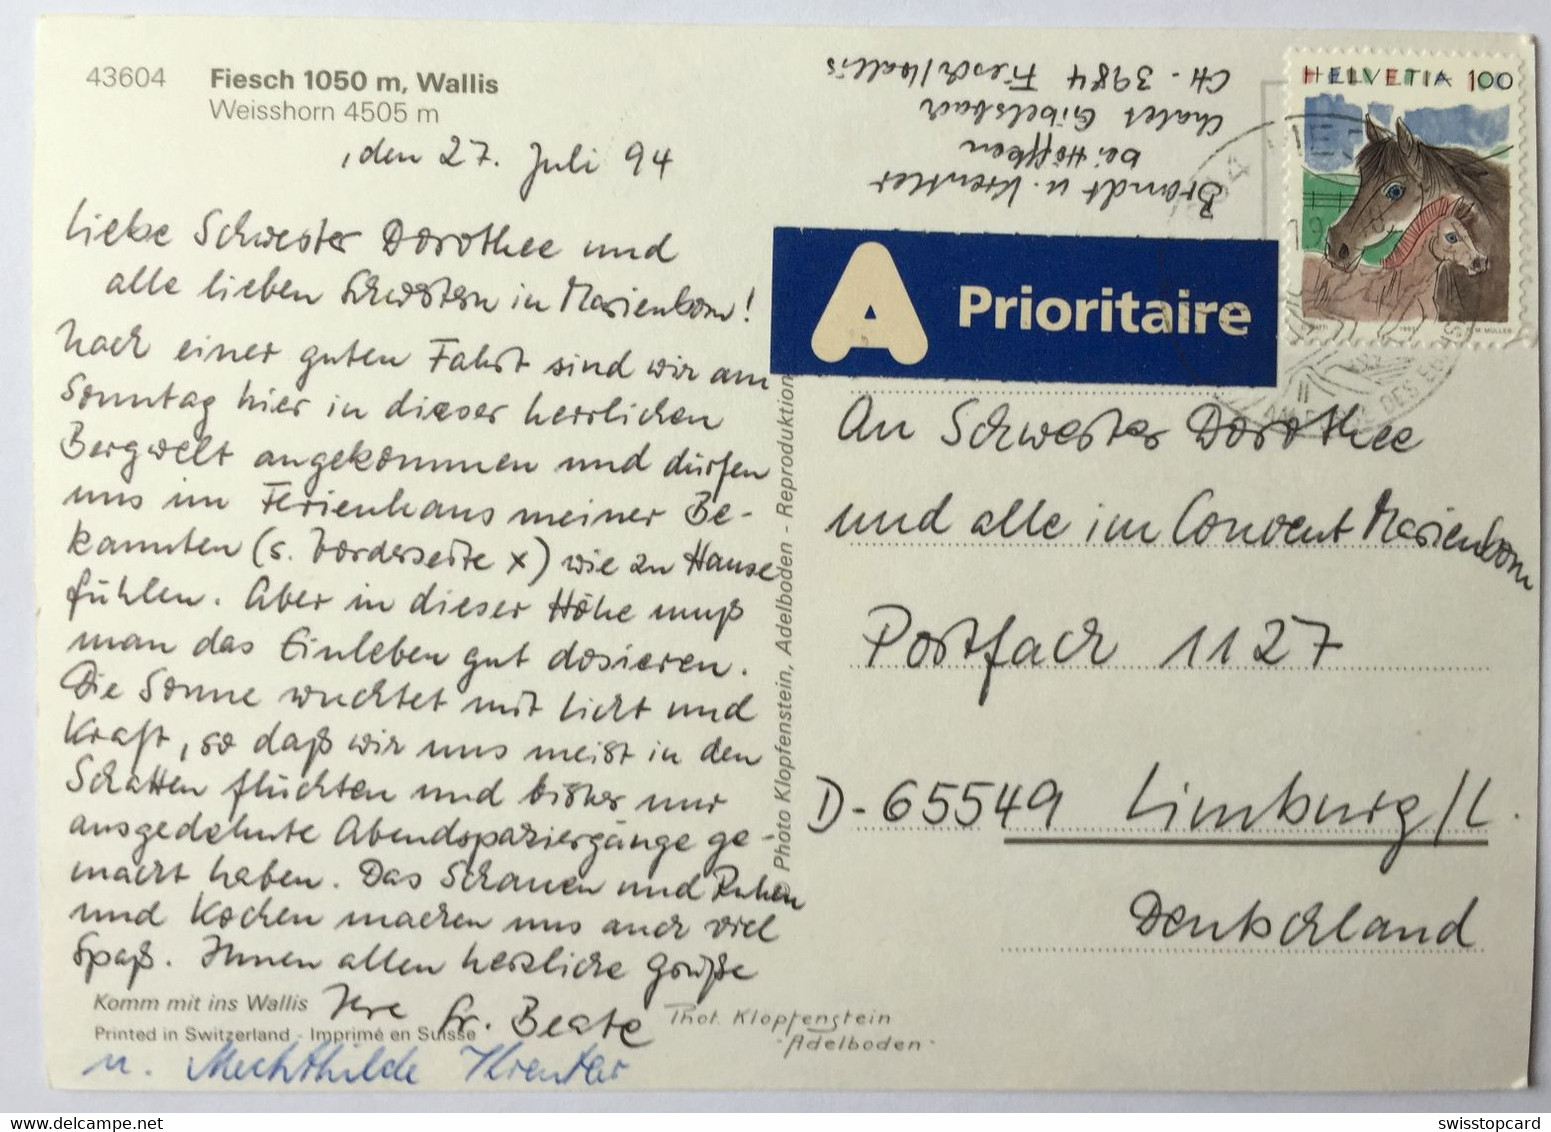 43604
Fiesch 1050 m, Wallis
Weisshorn 4505 m
, den 27. Juli 94
Liebe Schwester Dorothee und
alle lieben Schwestern in Marienborn!
Nach einer guten Fahrt sind wir am
Sonntag hier in dieser herrlichen
Bergwelt angekommen und dürfen
uns im Ferienhaus meiner Be-
kannten (s. Vorderseite x) wie zu Hause
fühlen. Aber in dieser Höhe muß
man das Einleben gut dosieren.
Die Sonne wuchtet mit Licht und
Kraft, so daß wir uns meist in den
Schatten flüchten und bisher nur
ausgedehnte Abendspaziergänge ge-
macht haben. Das Schauen und Ruhen
und Kochen machen uns auch viel
Spaß. Ihnen allen herzliche Grüße
Ihre Sr. Beate
u. Mechthilde Krentler
Komm mit ins Wallis
Printed in Switzerland - Imprimé en Suisse
Phot. Klopfenstein
- Adelboden -
© Photo Klopfenstein, Adelboden - Reproduktion
Brandt u. Krentler
bei Höffken
Chalet Gibelsbach
CH - 3984 Fiesch/Wallis
HELVETIA 100
A Prioritaire
An Schwester Dorothee
und alle im Convent Marienborn
Postfach 1127
D-65549 Limburg/L.
Deutschland
swisstopcard